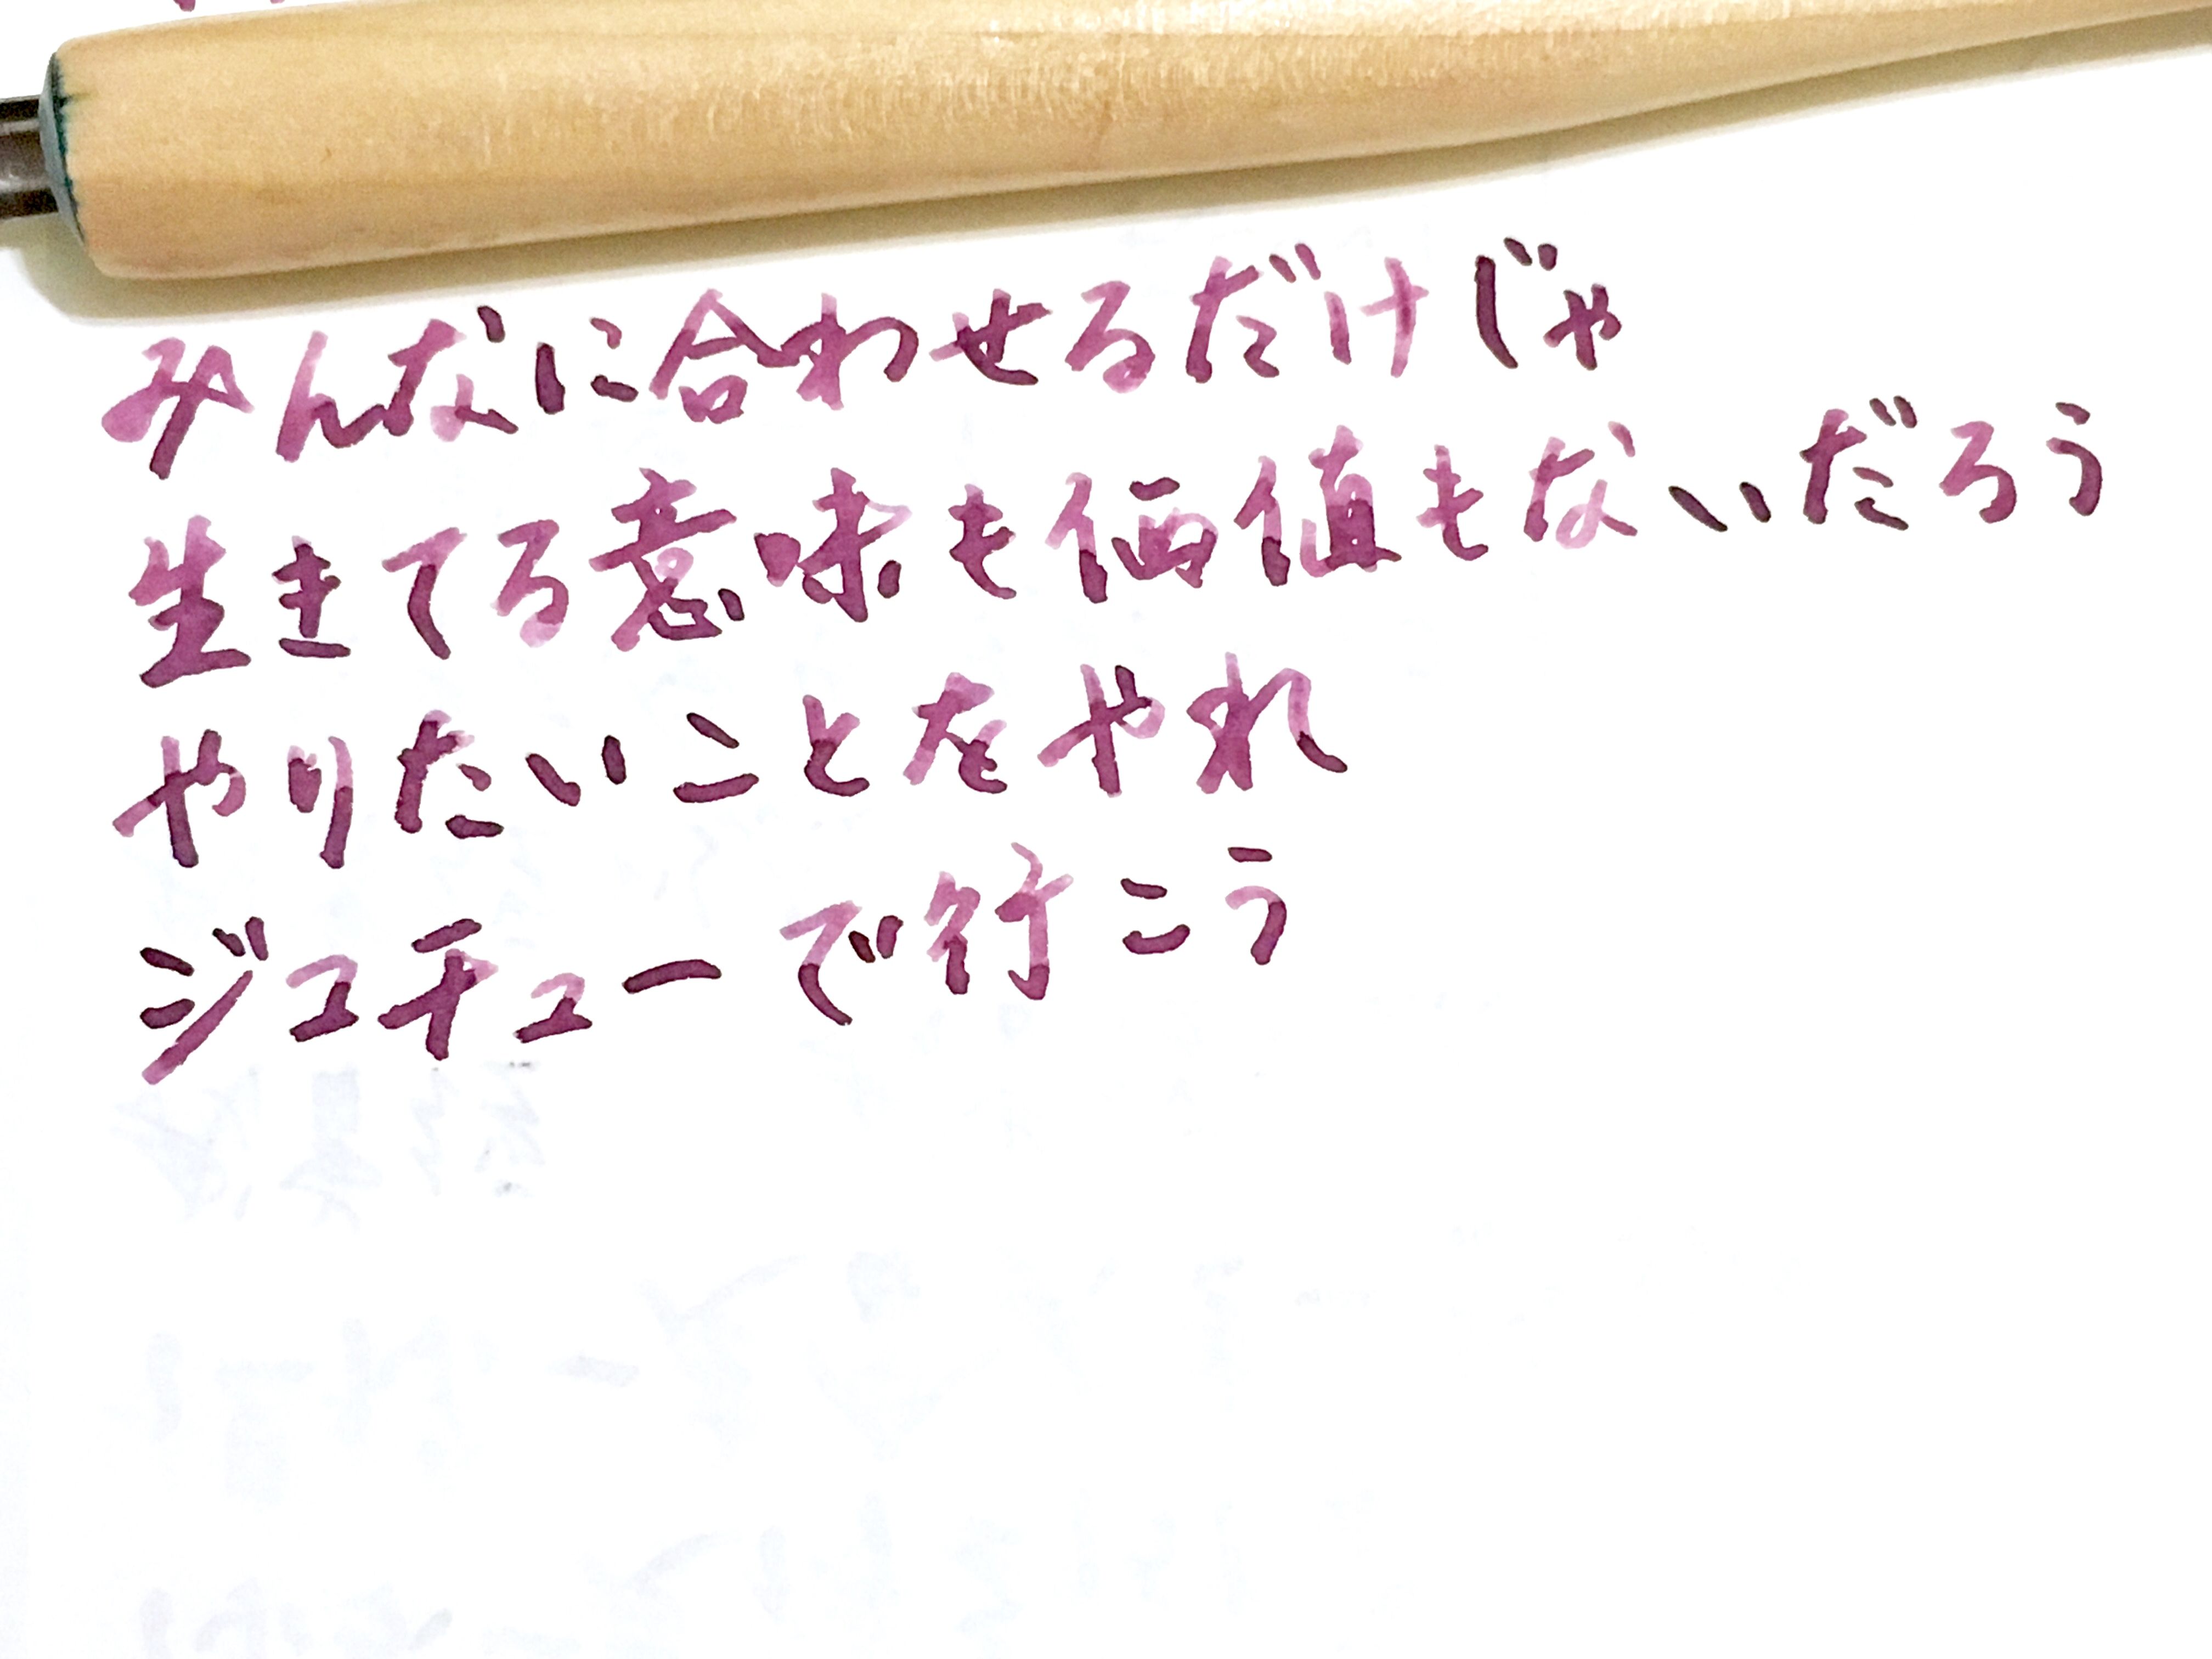 みんなに合わせるだけじゃ
生きてる意味も価値もないだろう
やりたいことをやれ
ジコチューで行こう